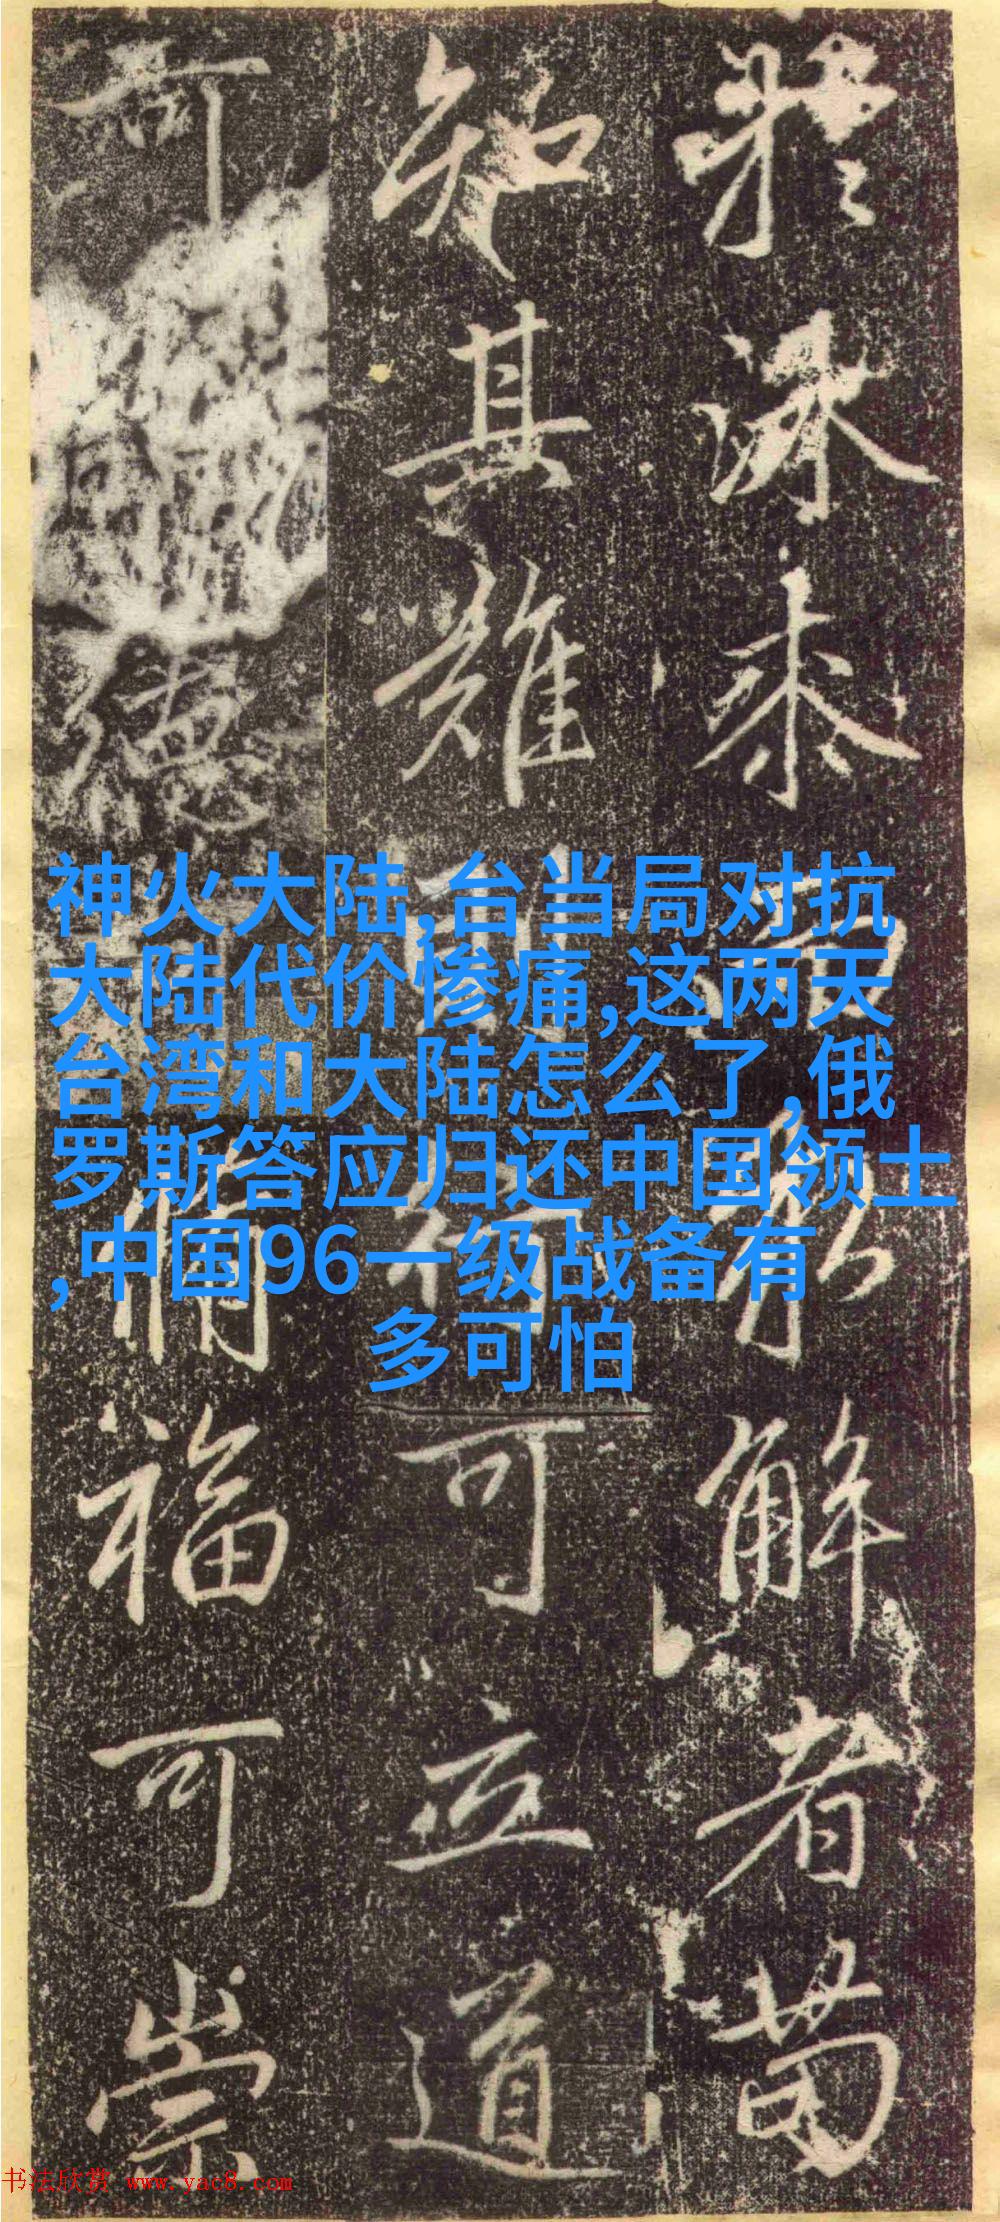 躰深泰而形解者苗
知其難可行可立道
可
德
情福可崇
神火大陆,台当局对抗
大陆代价惨痛,这两天
台湾和大陆怎么了,俄
罗斯答应归还中国领土
,中国96一级战备有
多可怕
书法欣赏 www.yac8.com